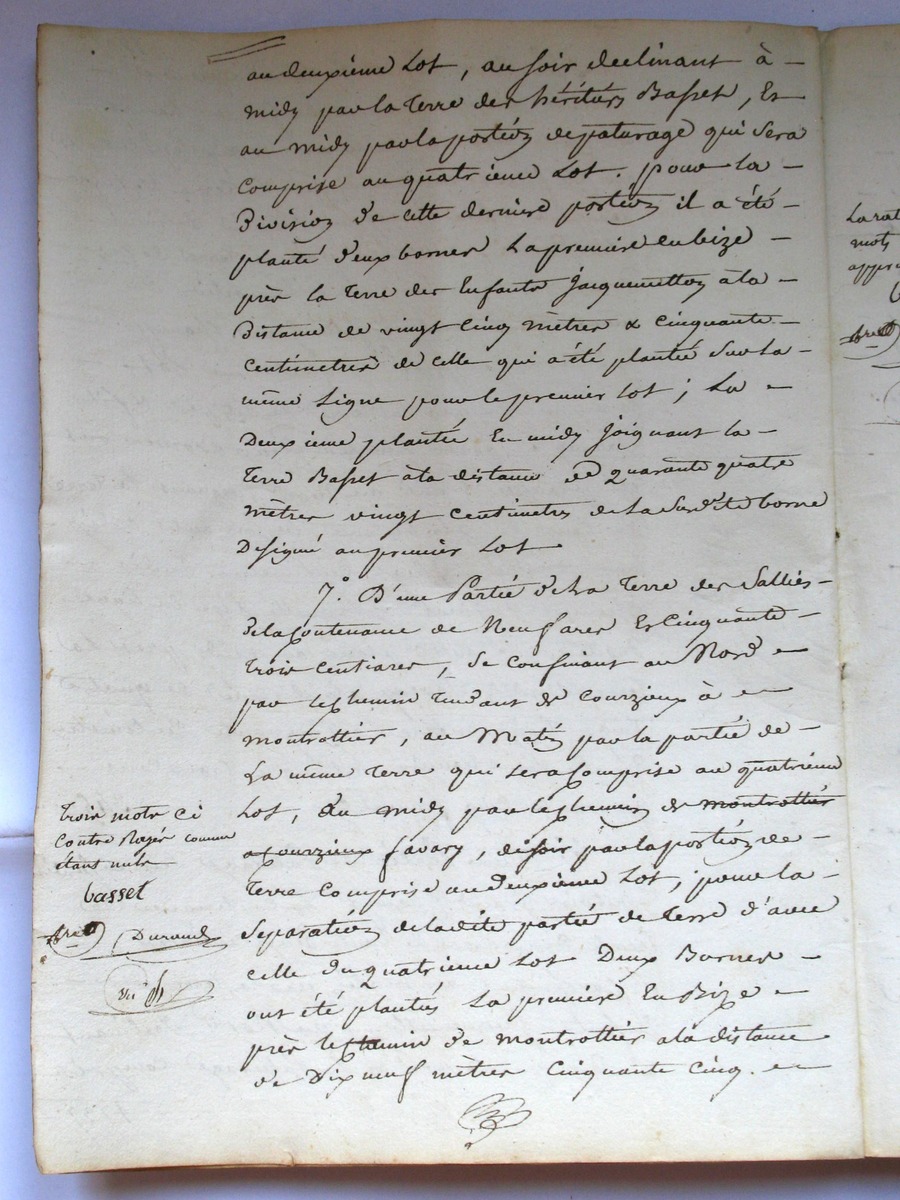 au deuxième Lot, au soir declinant à -
midy par la Terre des héritiers Basset, Et
au midy par la portion de paturage qui sera
Comprise au quatrieme Lot. pour la -
Division de cette derniere portion il a été -
planté deux bornes La premiere en bize -
près la Terre des Enfants Jacquemetton à la -
Distance de vingt Cinq mètres & cinquante -
Centimetres de celle qui a été plantée Sur la -
même Ligne pour le premier Lot ; La -
Deuxieme plantée En midy Joignant la -
Terre Basset à la distance de quarante quatre
mètres vingt Centimetres de La Susdite borne
Designé au premier Lot
7.° D'une Partie de La Terre des Salliés -
de la Contenance de Neuf ares Et Cinquante -
trois centiares, Se confinant au Nord -
par le Chemin Tendant de Courzieux à -
montrottier, au Matin par la partie de -
La même Terre qui sera Comprise au quatriéme
Lot, du midy par le chemin de montrottier
a Courzieux favary, de soir par la portion de -
Terre Comprise au deuxième Lot ; pour la -
Separation de la dite partie de Terre d'avec
celle du quatrieme Lot Deux Bornes -
ont été plantés La premiere En Bize -
près le Chemin de montrottier a la distance
de Dix neuf mètres Cinquante Cinq. -
trois mots ci
Contre Rayés comme
étant nuls
basset
Durand
La rat
mots
appro